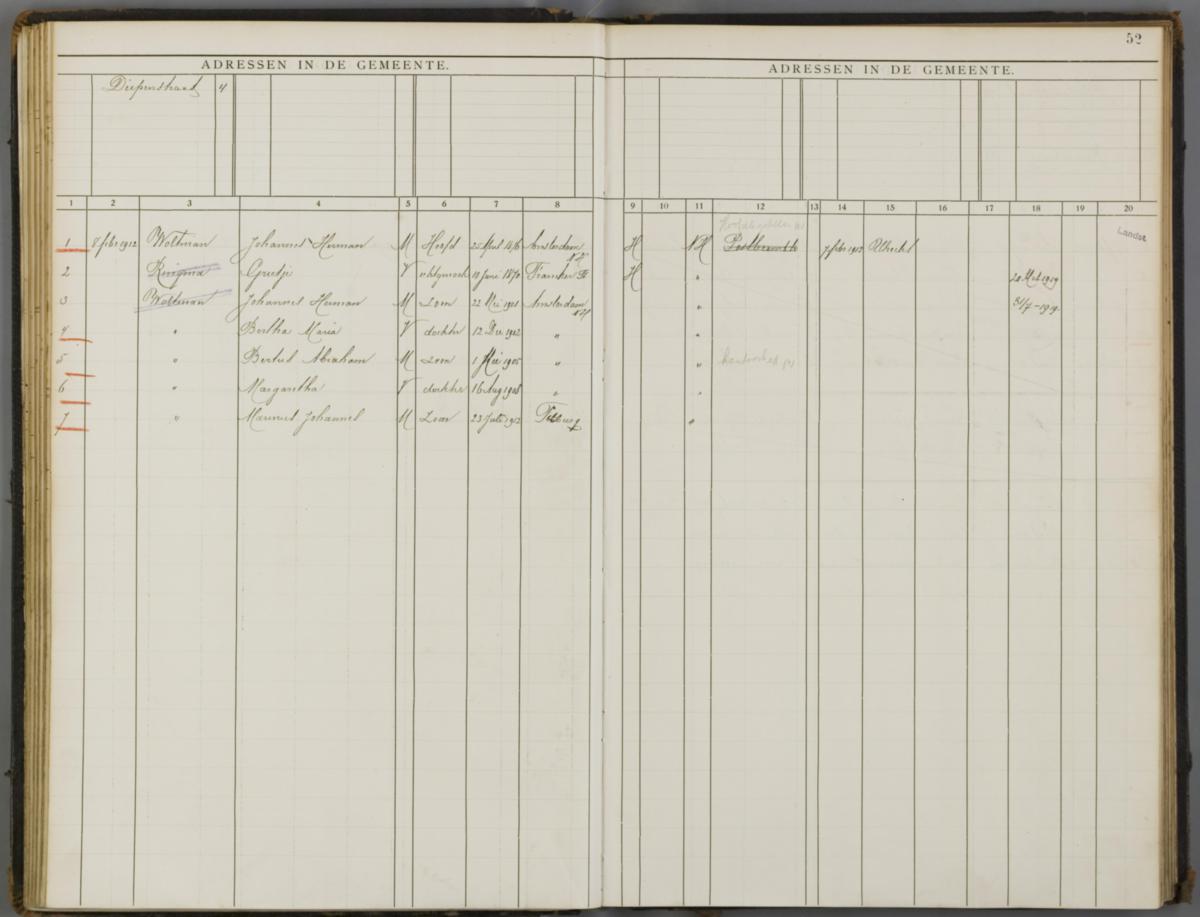 52
ADRESSEN IN DE GEMEENTE. ADRESSEN IN DE GEMEENTE.
Diepenstraat 4
1 2 3 4 5 6 7 8 9 10 11 12 13 14 15 16 17 18 19 20
Landst
1 8 febr 1912 Woltman Johannes Herman M Hoofd 25 April 1876 Amsterdam NH H NH 7 febr 1912 Utrecht
2 Ringma Grietje V echtgenoote 18 Juni 1870 Franeker Fr H " 1919
3 Woltman Johannes Herman M Zoon 22 Mei 1901 Amsterdam NH " 31/7-1919
4 " Bertha Maria V dochter 12 Dec 1902 " "
5 " Bertus Abraham M Zoon 1 Mei 1905 " "
6 " Margaretha V dochter 16 Aug 1908 " "
7 " Marinus Johannes M Zoon 23 Juli 1912 Tilburg "